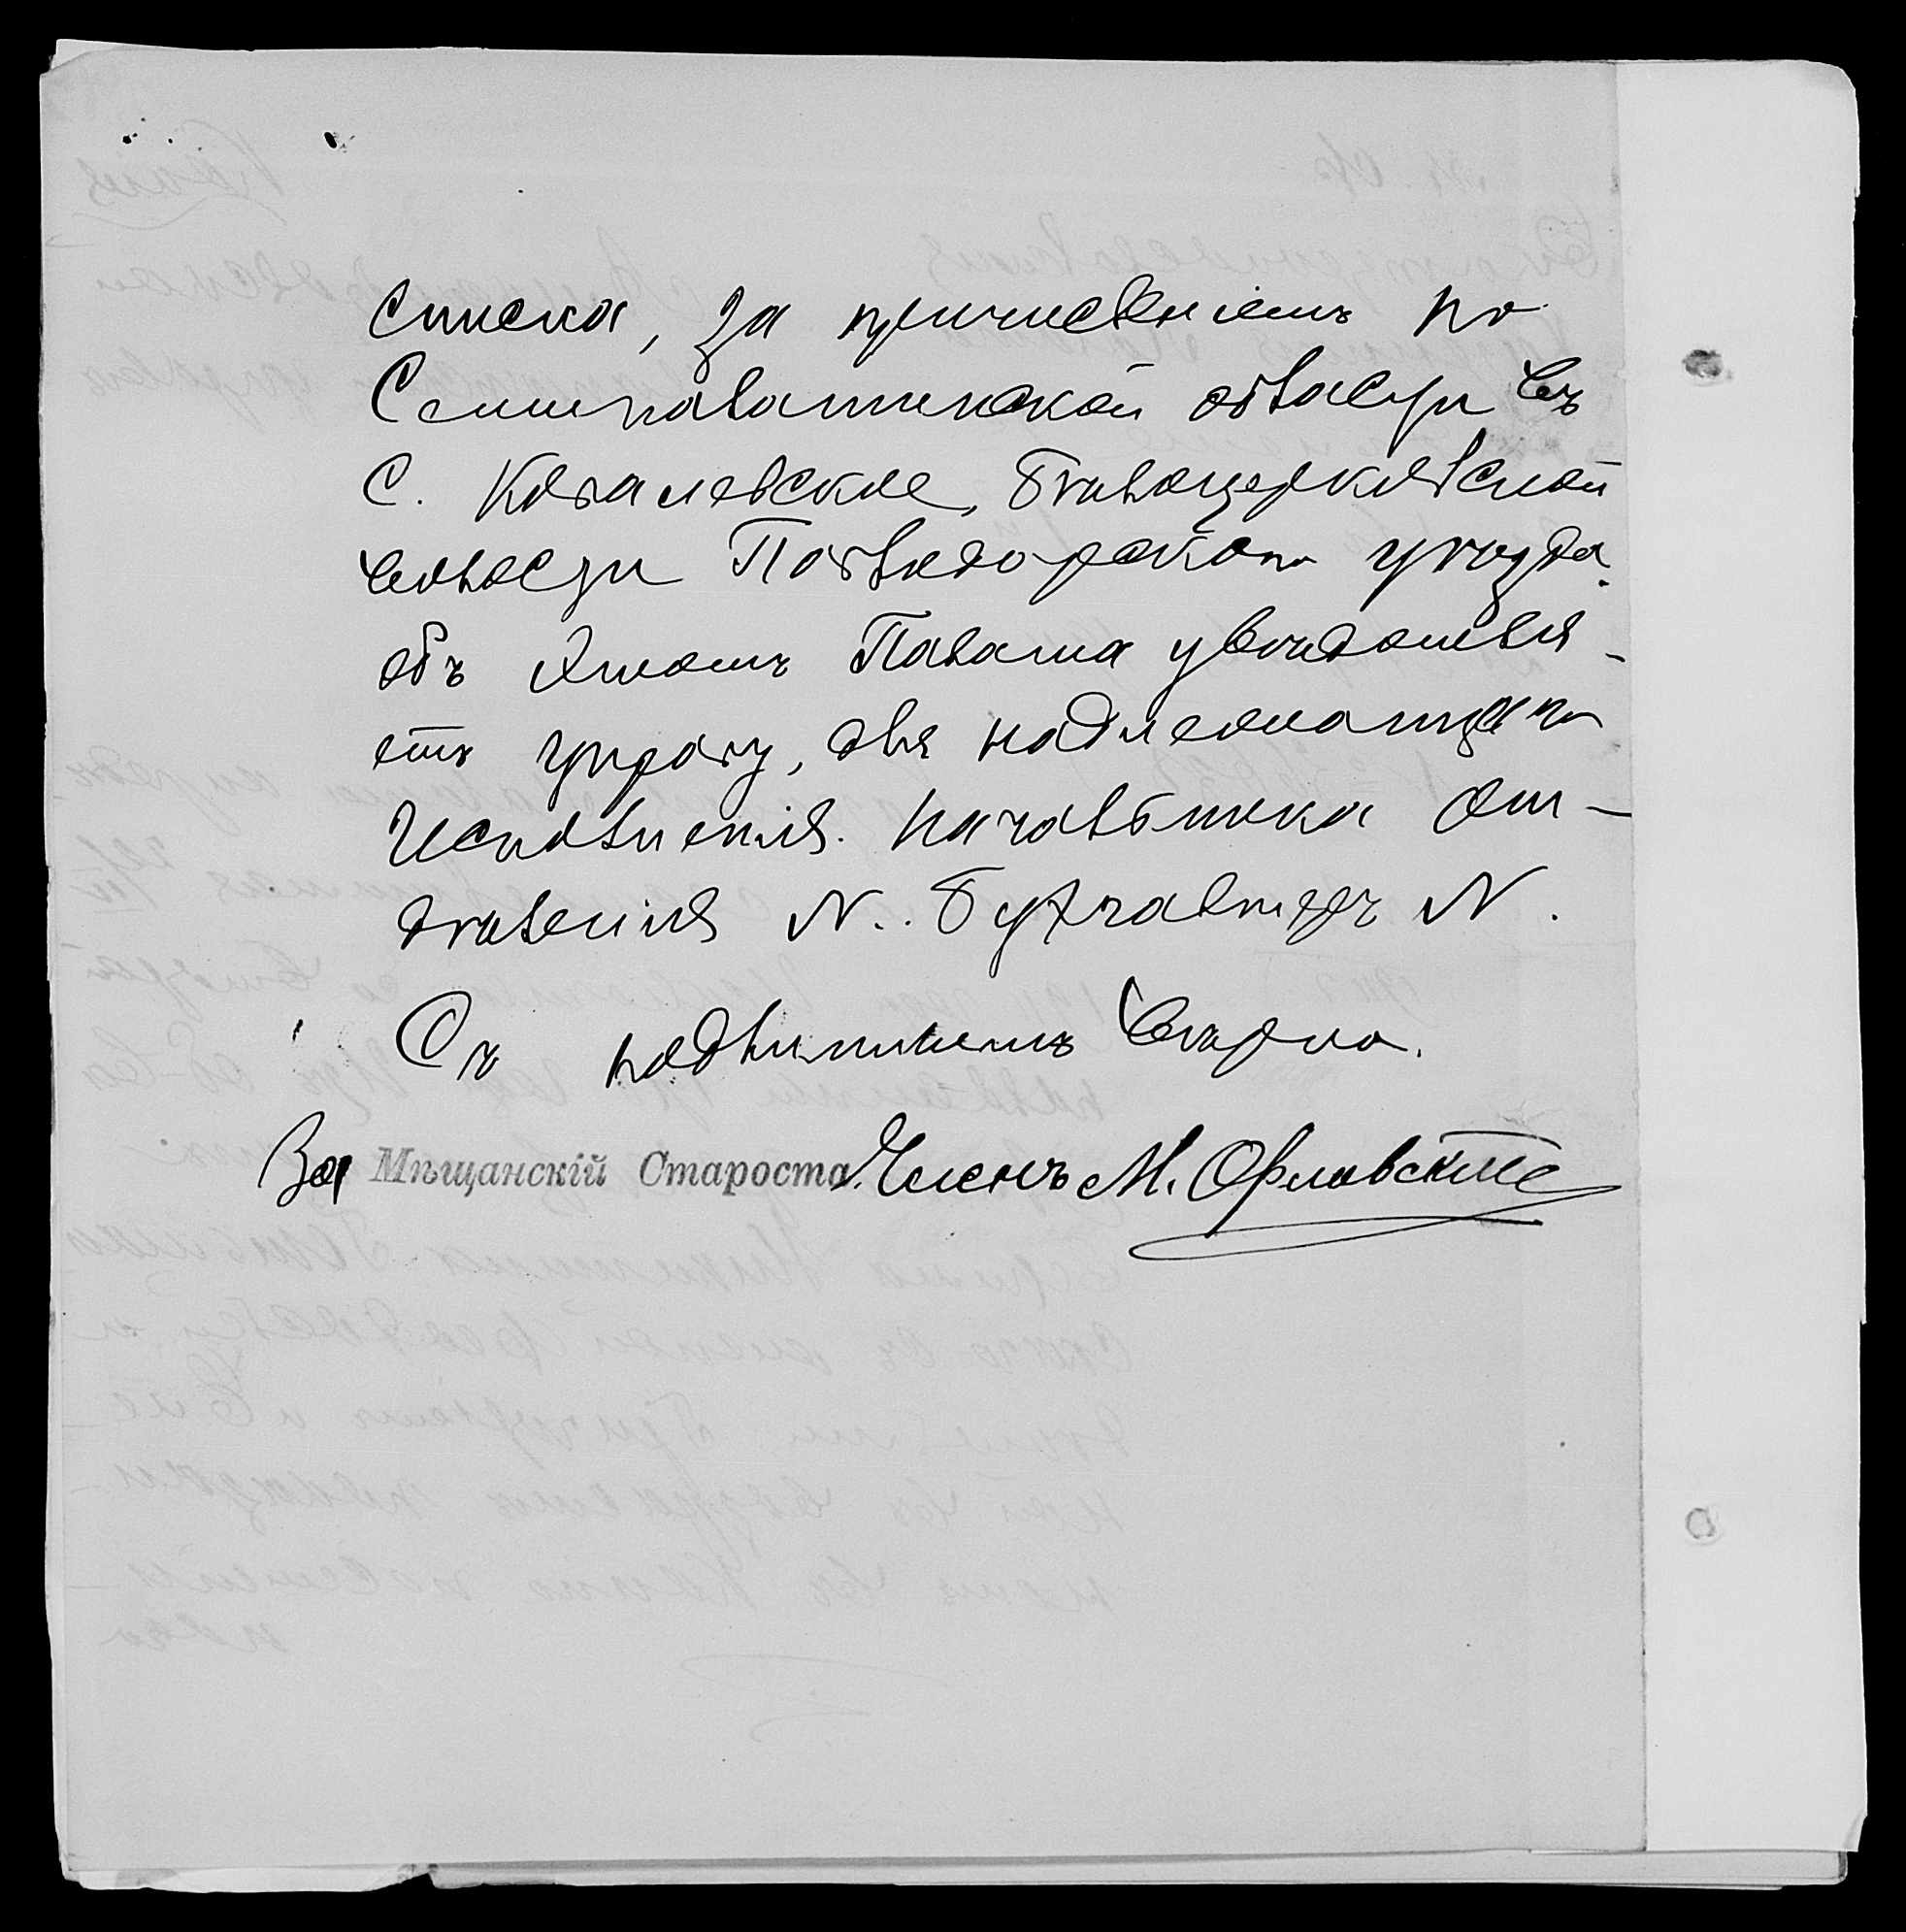 списка, за причисленіемъ по
Семипалатинской области въ
с. Ковалевское, Бѣлоцерковской
волости Павлодарскаго уѣзда.
объ этомъ Палата увѣдомля-
етъ управу, для надлежащаго
исполненія. Начальника От-
дѣленія N. Бухгалтеръ N.
Съ подлиннымъ вѣрно.
За Мѣщанскій Староста Членъ М. Орловскій